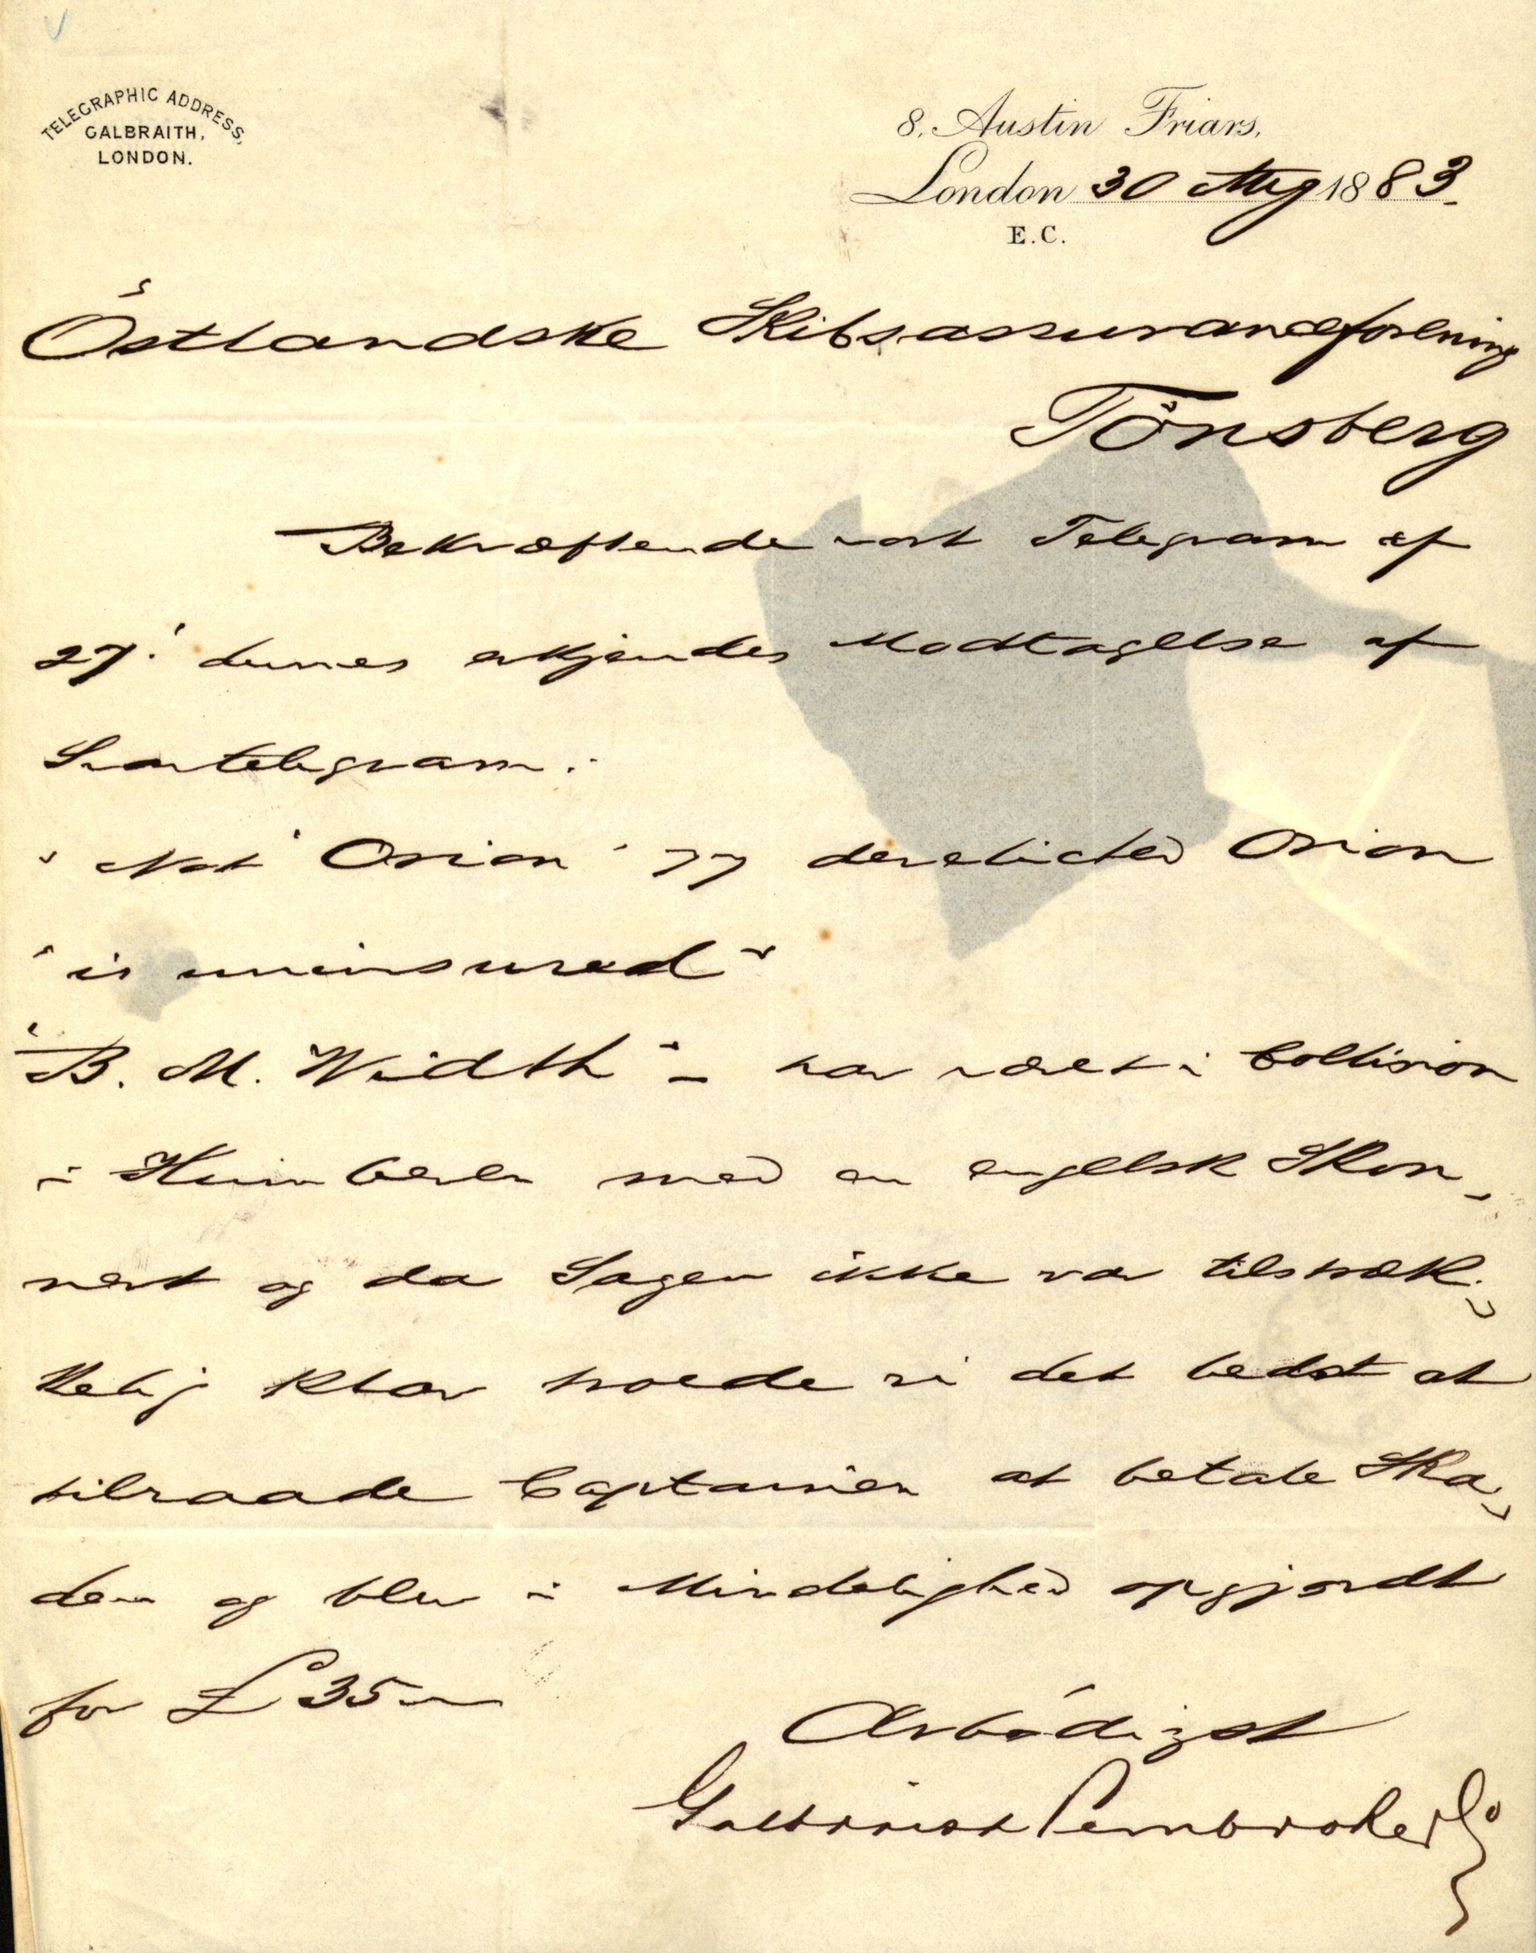 TELEGRAPHIC ADDRESS,
GALBRAITH,
LONDON.
8, Austin Friars,
London 30 Aug 1883.
E.C.
Östlandske Skibsassuranceforening
Tönsberg
Bekræftende vort Telegram af
27' dennes erkjendes Modtagelse af
Svartelegram:
"Not "Orion" 77 derelicted Orion
"is uninsured"
"B. M. Width" – har været i Collision
i Humberen med en engelsk Skon-
nert og da Sagen ikke var tilstræk-
kelig klar troede vi det bedst at
tilraade Captainen at betale Ska-
den og blev i Mindelighed opgjordt
for £35
Ærbödigst
Galbraith Pembroke & Co